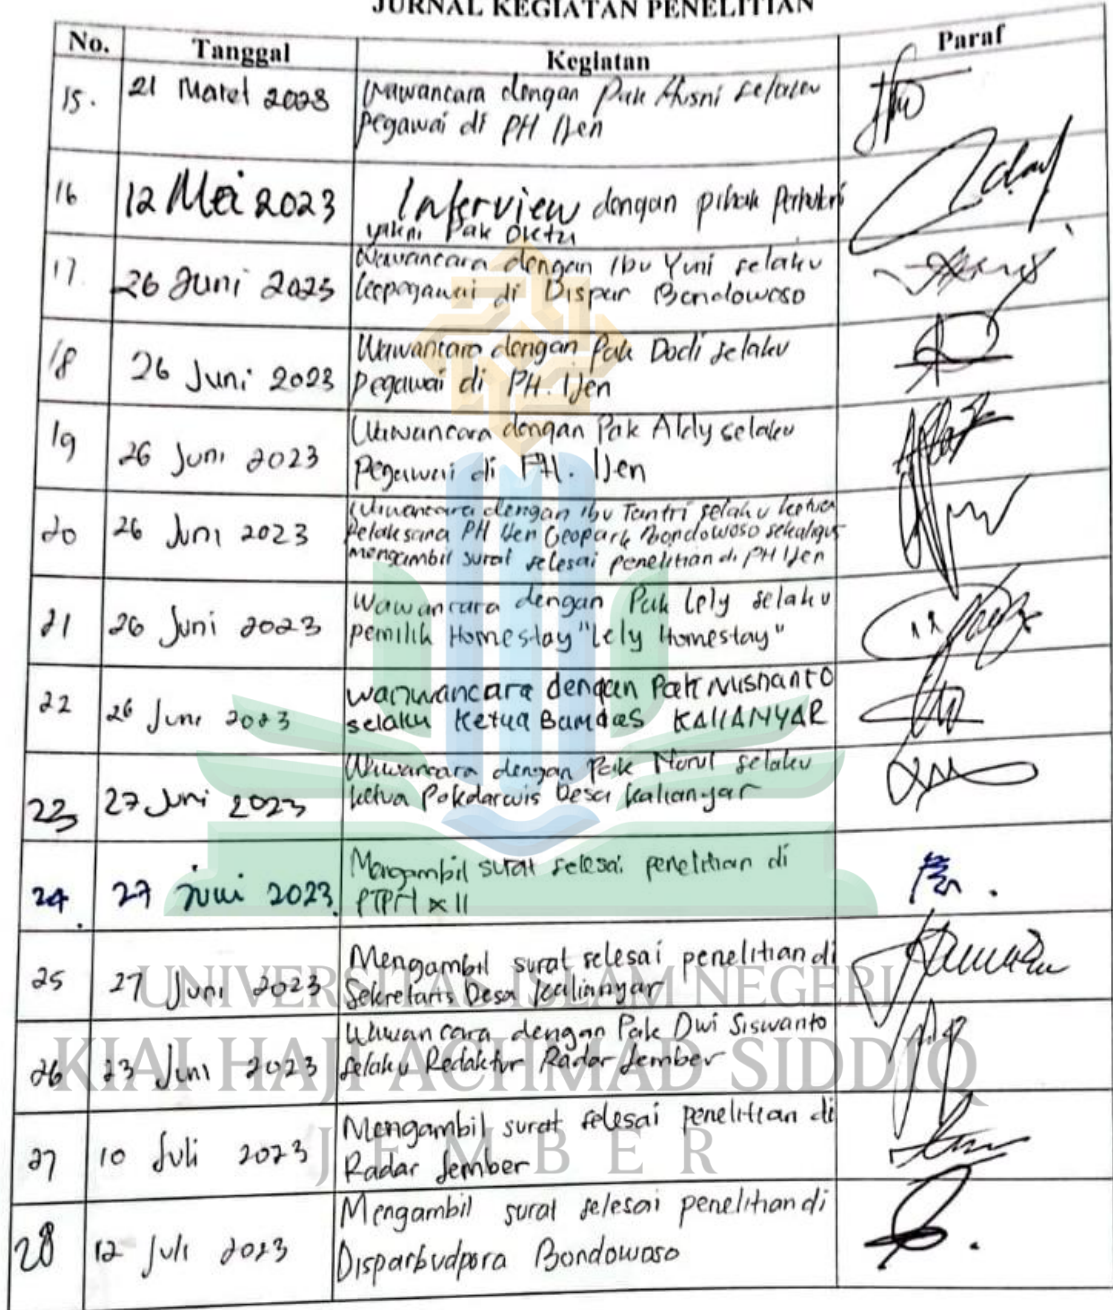 JURNAL KEGIATAN PENELITIAN
No. Tanggal Kegiatan Paraf
15. 21 Maret 2023 Wawancara dengan Pak Husni selaku
pegawai di PH Ijen
16 12 Mei 2023 Interview dengan pihak Perhutani
yakni Pak
17. 26 Juni 2023 Wawancara dengan Ibu Yuni selaku
kepegawai di Dispar Bondowoso
18 26 Juni 2023 Wawancara dengan Pak Dodi selaku
pegawai di PH. Ijen
19 26 Juni 2023 Wawancara dengan Pak Aldy selaku
Pegawai di PH. Ijen
20 26 Juni 2023 Wawancara dengan Ibu Tantri selaku ketua
Pelaksana PH Ijen Geopark Bondowoso sekaligus
mengambil surat selesai penelitian di PH Ijen
21 26 Juni 2023 Wawancara dengan Pak Lely selaku
pemilik Homestay "Lely Homestay"
22 26 Juni 2023 Wawancara dengan Pak Misnanto
selaku Ketua Bumdes KALIANYAR
23 27 Juni 2023 Wawancara dengan Pak Nurul selaku
ketua Pokdarwis Desa Kalianyar
24. 27 Juni 2023. Mengambil surat selesai penelitian di
PTPN XII
25 27 Juni 2023 Mengambil surat selesai penelitian di
Sekretaris Desa Kalianyar
26 23 Juni 2023 Wawancara dengan Pak Dwi Siswanto
selaku Redaktur Radar Jember
27 10 Juli 2023 Mengambil surat selesai penelitian di
Radar Jember
28 12 Juli 2023 Mengambil surat selesai penelitian di
Disparbudpora Bondowoso
UNIVERSITAS ISLAM NEGERI
KIAI HAJI ACHMAD SIDDIQ
JEMBER